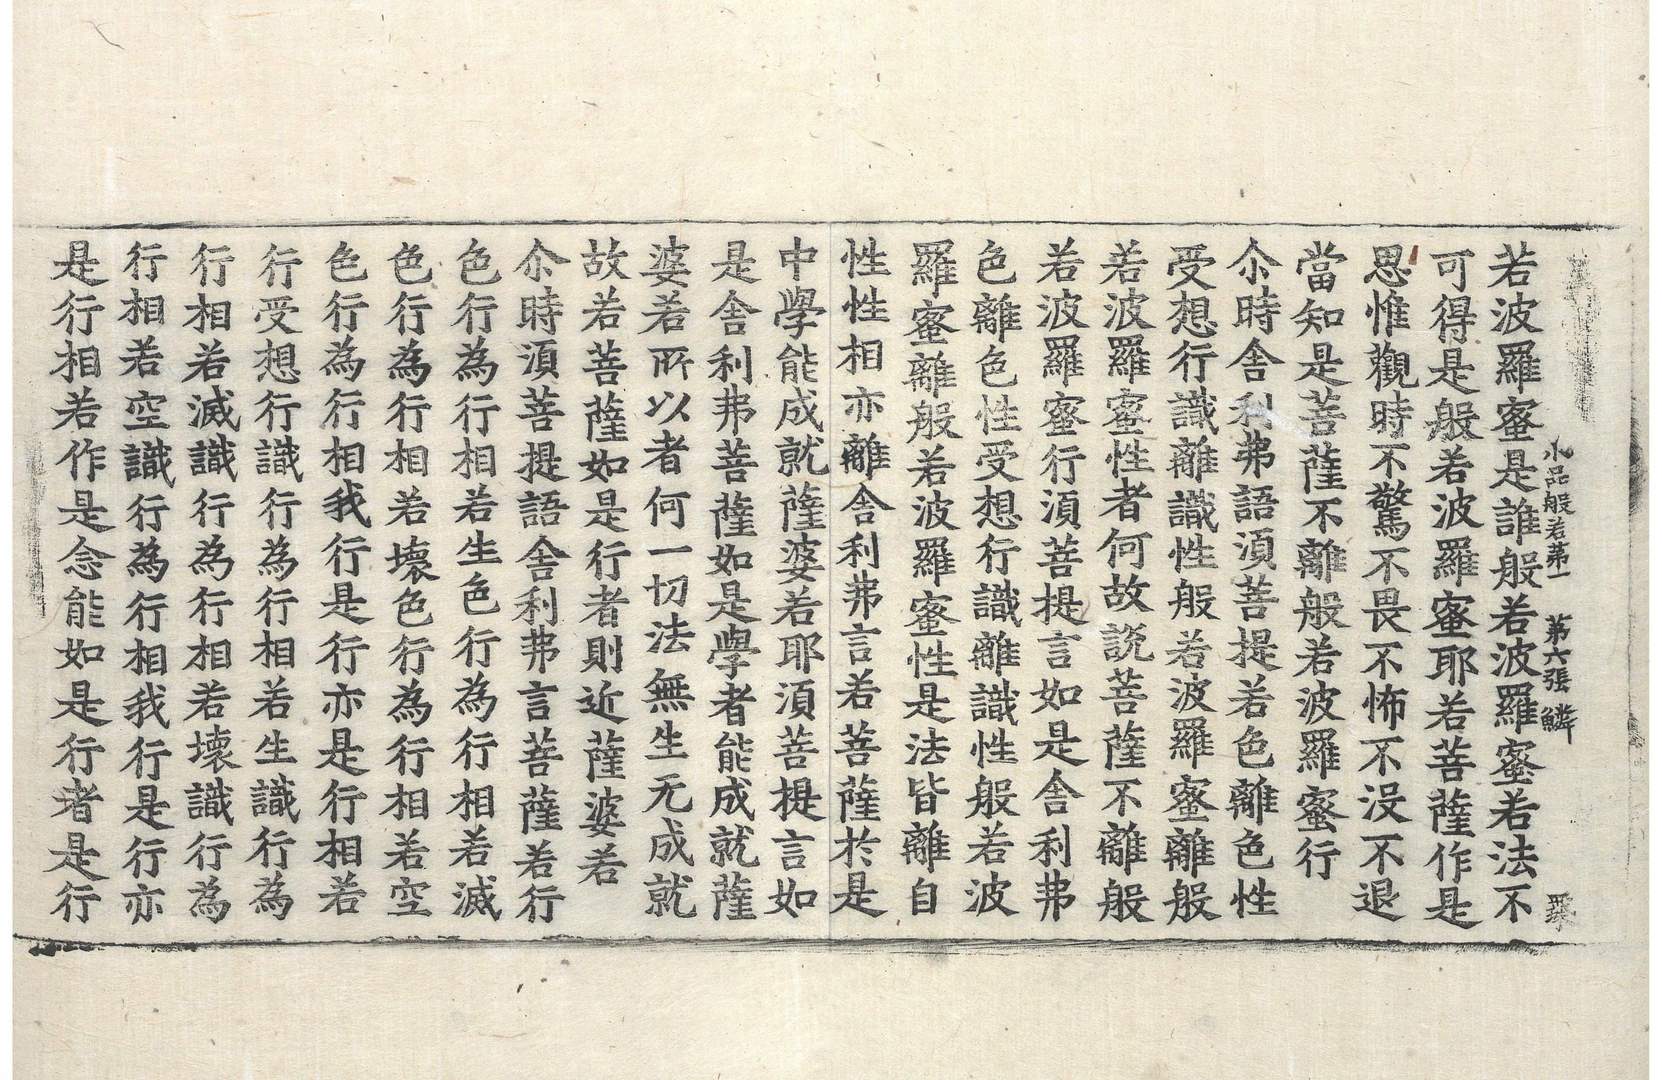 小品般若苐一　第六張　鱗
若波羅蜜是誰般若波羅蜜若法不
可得是般若波羅蜜耶若菩薩作是
思惟觀時不驚不畏不怖不没不退
當知是菩薩不離般若波羅蜜行
尒時舍利弗語湏菩提若色離色性
受想行識離識性般若波羅蜜離般
若波羅蜜性者何故説菩薩不離般
若波羅蜜行湏菩提言如是舍利弗
色離色性受想行識離識性般若波
羅蜜離般若波羅蜜性是法皆離自
性性相亦離舍利弗言若菩薩於是
中學能成就薩婆若耶湏菩提言如
是舍利弗菩薩如是學者能成就薩
婆若所以者何一切法無生无成就
故若菩薩如是行者則近薩婆若
尒時湏菩提語舍利弗言菩薩若行
色行為行相若生色行為行相若滅
色行為行相若壞色行為行相若空
色行為行相我行是行亦是行相若
行受想行識行為行相若生識行為
行相若滅識行為行相若壞識行為
行相若空識行為行相我行是行亦
是行相若作是念能如是行者是行